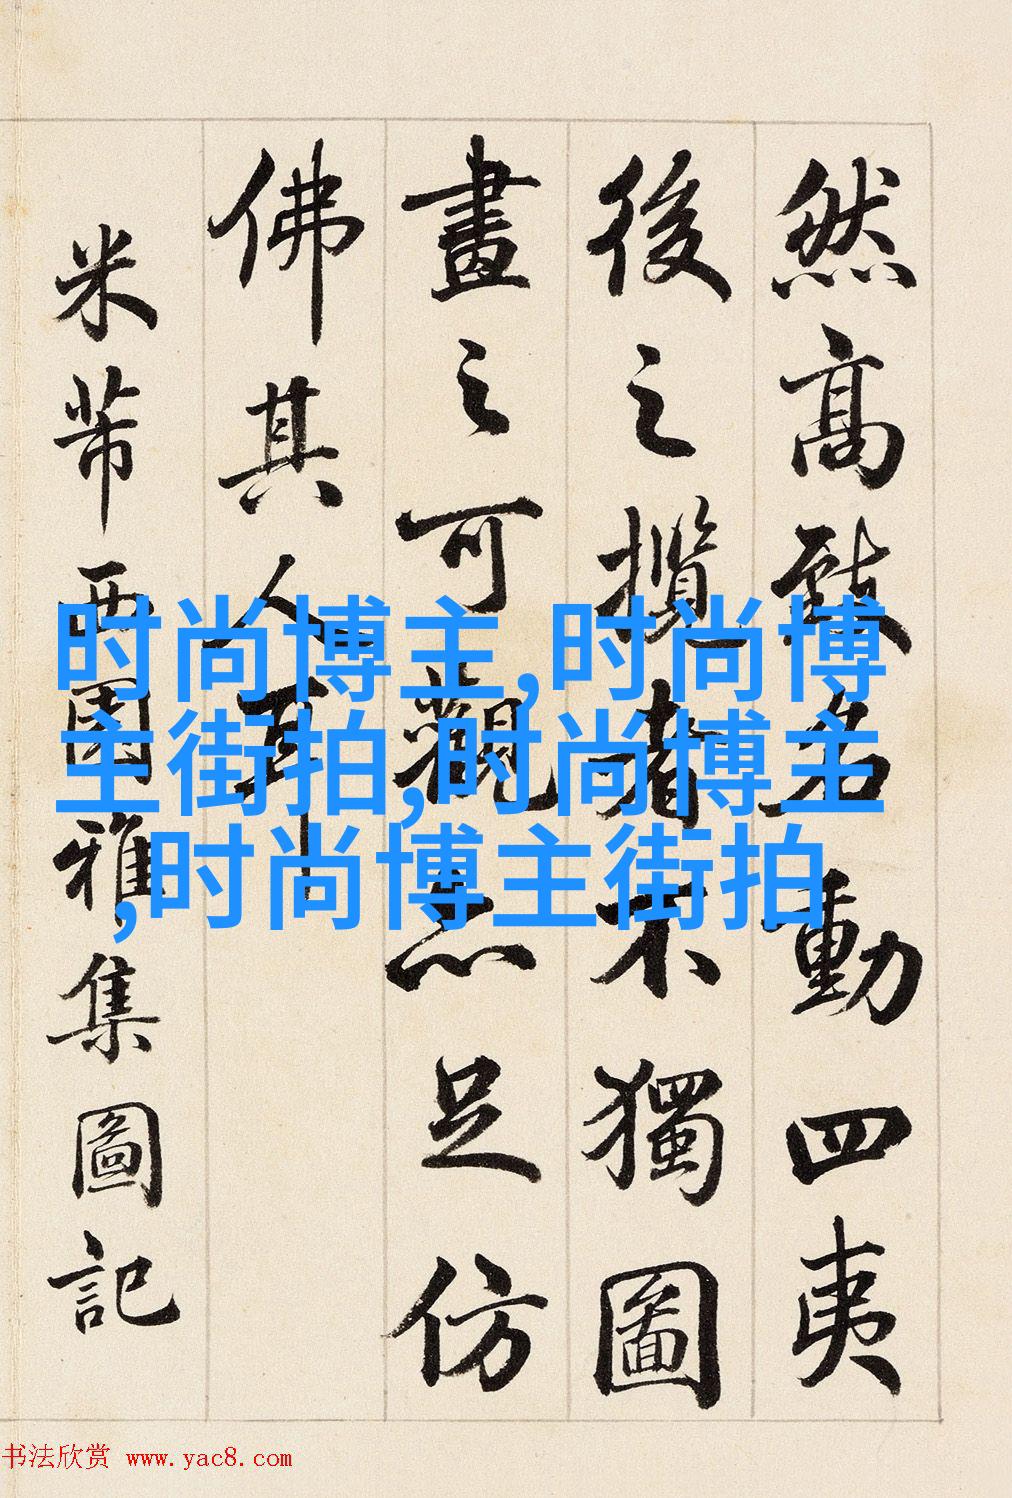 然高致名動四夷
後之攬者不獨圖
畫之可觀亦足仿
佛其人耳
米芾西園雅集圖記
时尚博主,时尚博
主街拍,时尚博主
,时尚博主街拍
书法欣赏 www.yac8.com